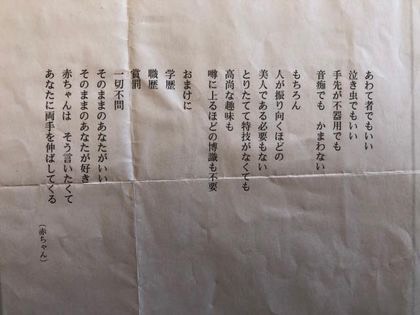 あわて者でもいい
泣き虫でもいい
手先が不器用でも
音痴でも　かまわない
もちろん
人が振り向くほどの
美人である必要もない
とりたてて特技がなくても
高尚な趣味も
噂に上るほどの博識も不要
おまけに
学歴
職歴
賞罰
一切不問
そのままのあなたがいい
そのままのあなたが好き
赤ちゃんは　そう言いたくて
あなたに両手を伸ばしてくる
（赤ちゃん）